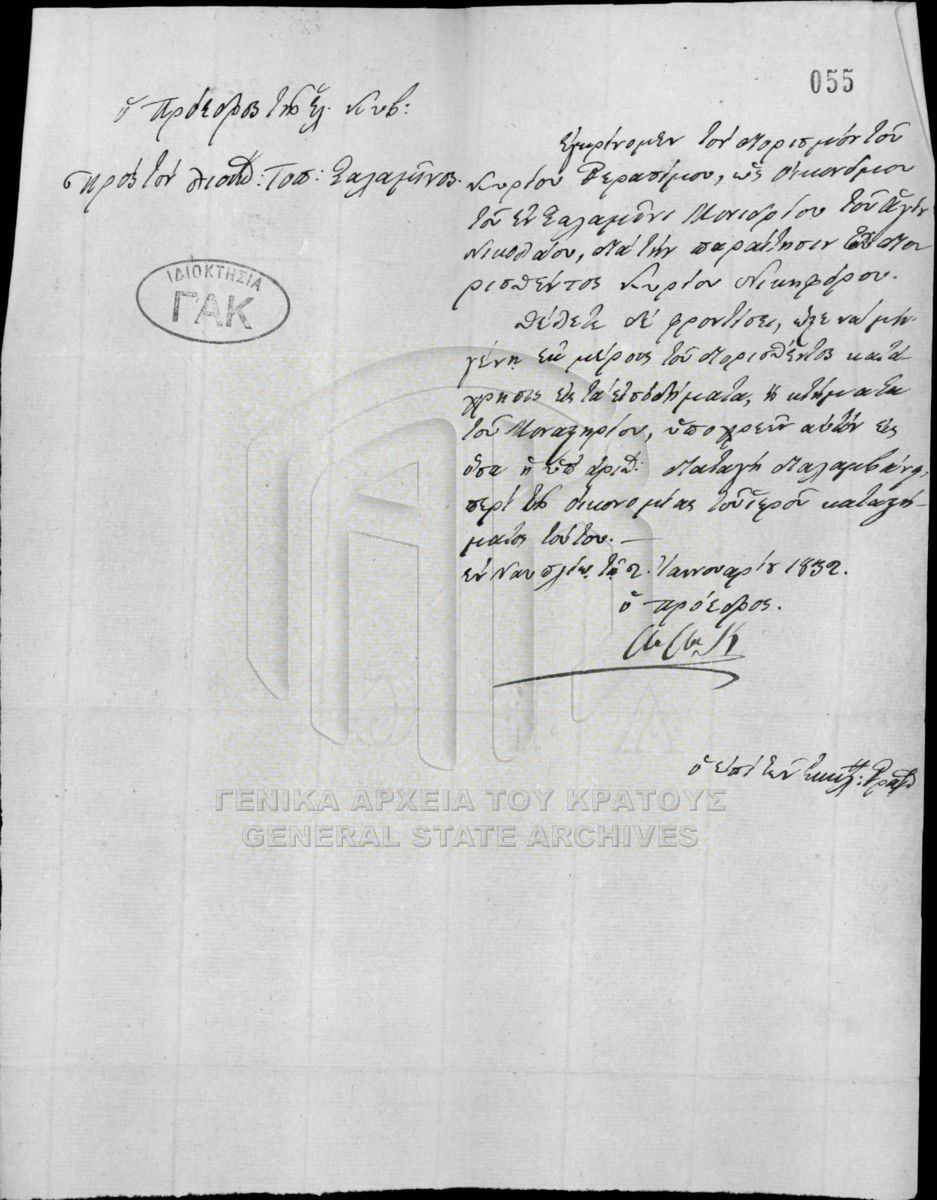 055
ὁ Πρόεδρος τῆς Ἑλ. Κυβ:
Πρὸς τὸν Διοικ: Τοπ: Σαλαμῖνος.
Ἐγκρίνομεν τὸν διορισμὸν τοῦ
Κυρίου Γερασίμου, ὡς οἰκονόμου
τοῦ ἐν Σαλαμῖνι Μοναστηρίου τοῦ Ἁγίου
Νικολάου, διὰ τὴν παραίτησιν τοῦ διο
ρισθέντος Κυρίου Νικηφόρου.
Θέλετε δὲ φροντίσει, ὥστε νὰ μὴ
γένῃ ἐκ μέρους τοῦ διορισθέντος κατά
χρησις εἰς τὰ εἰσοδήματα, ἢ κτήματα
τοῦ Μοναστηρίου, ὑποχρεῶν αὐτὸν εἰς
ὅσα ἡ ὑπ' ἀριθ: διαταγὴ διαλαμβάνει,
περὶ τῆς οἰκονομίας τοῦ ἱεροῦ καταστή-
ματος τούτου. —
ἐν Ναυπλίῳ τῇ 2. Ἰαννουαρίου 1832.
ὁ Πρόεδρος.
ὁ ἐπὶ τῶν Ἐκκλ: Γραμ
ΙΔΙΟΚΤΗΣΙΑ
ΓΑΚ
ΓΕΝΙΚΑ ΑΡΧΕΙΑ ΤΟΥ ΚΡΑΤΟΥΣ
GENERAL STATE ARCHIVES